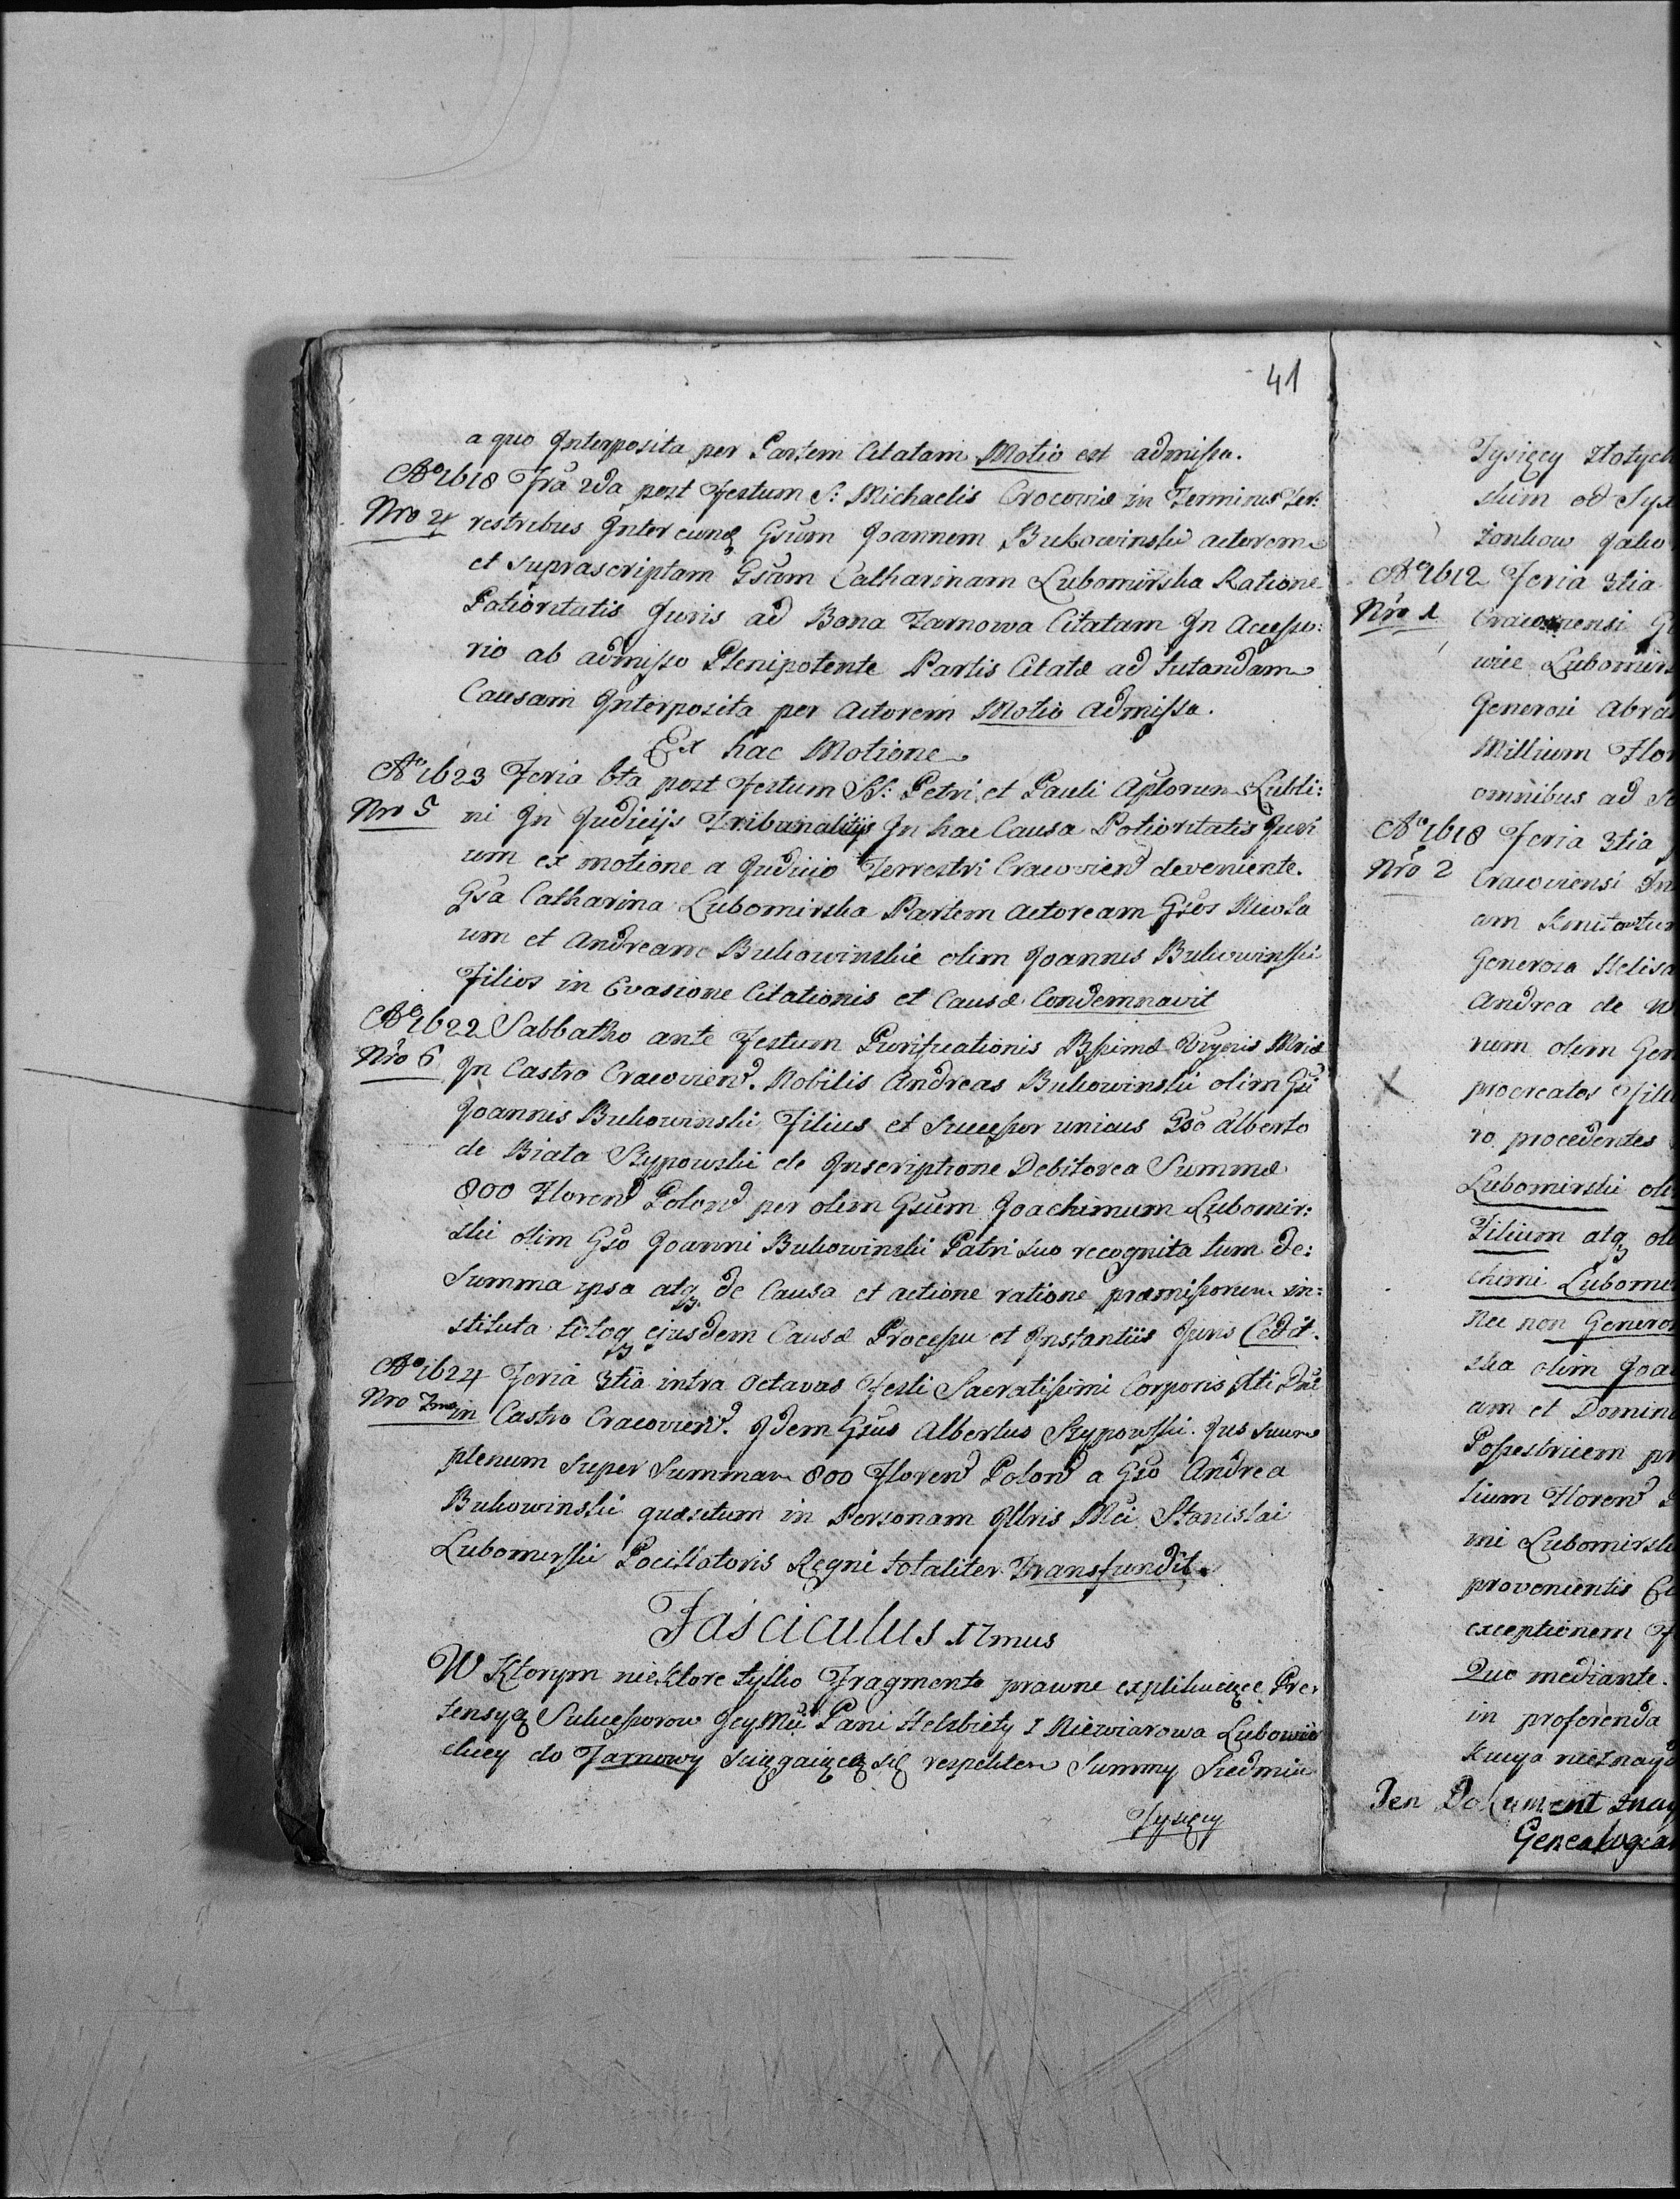 41
a quo Interposita per Partem Citatam Motio est admissa.
Ao 1618 Fra 2da post Festum S: Michaelis Crocoviæ in Terminis Ter:
Nro 4 restribus Inter eundq Gsum Joannem Bukowinski actorem
et suprascriptam Gsam Catharinam Lubomirska Ratione
Patioritatis Juris ad Bona Tarnowa Citatam In Accesso:
rio ab admisso Plenipotente Partis Citatæ ad tutandam
Causam Interposita per Actorem Motio admissa.
Ex hac Motione
Ao 1623 Feria 6ta post Festum SS: Petri et Pauli Aplorum Lubli:
Nro 5 ni In Judicijs Tribunalitijs In hac Causa Potioritatis Juri
um ex motione a Judicio Terrestri Cracovien deveniente.
Gsa Catharina Lubomirska Partem Actoream Gsos Nicola
um et Andream Bukowinskie olim Joannis Bukowinski
Filios in Evasione Citationis et Causæ Condemnavit
Ao 1622 Sabbatho ante Festum Purificationis Bssimæ Virginis Mriæ
Nro 6 In Castro Cracovien. Nobilis Andreas Bukowinski olim Gsi
Joannis Bukowinski Filius et Successor unicus Gso Alberto
de Biała Szypowski de Inscriptione Debitorea Summæ
800 Floren Polon per olim Gsum Joachimum Lubomir:
ski olim Gso Joanni Bukowinski Patri suo recognita tum de:
Summa ipsa atq de Causa et actione ratione præmissorum in:
stituta totoq ejusdem Causæ Processu et Instantiis Juris Cedit.
Ao 1624 Feria 3tia intra Octavas Festi Sacratissimi Corporis Xti Dni
Nro 7mo in Castro Cracovien. Idem Gsus Albertus Szypowski. Jus suum
plenum super Summam 800 Floren Polon a Gso Andrea
Bukowinski quæsitum in Personam Illris Mci Stanislai
Lubomirski Pocillatoris Regni totaliter Transfundit.
Fasciculus 17mus
W Ktorym niektore tylko Fragmenta prawne explikuiące Pre:
tensyą Sukcessorow JeyMci Pani Helzbiety z Niewiarowa Lubowie
ckiey do Tarnowy sciągaiącą się respektem Summy Siedmiu
Tysięcy
Tysięcy Złotych
skim od Syx
Zonkow Jako
Ao 1612 Feria 3tia
Nro 1 Cracoviensi G
wiec Lubomirs
Generosi Abra
Millium Flor
omnibus ad
Ao 1618 Feria 3tia
Nro 2 Cracoviensi In
am
Generosa Helisa
Andrea de
rum olim Gen
procreatos Filii
ro procedentes
Lubomirski oli
Filium atq oli
chimi Lubomi
Nec non Genero
ska olim Joa
am et Domin
Possestricem pr
lium Floren
mi Lubomirski
provenientis
exceptionem
Quo mediante.
in proferenda
Ten Dokument znay
Genealogia